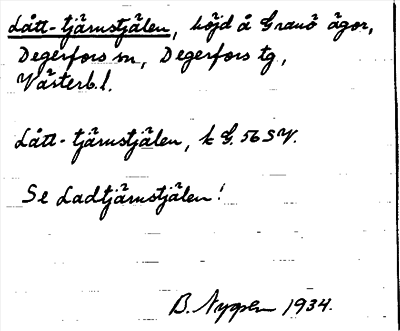 Lått-tjärnstjälen, höjd å Granö ägor,
Degerfors sn, Degerfors tg,
Västerb. l.
Lått-tjärnstjälen, k G. 56 SV.
Se Ladtjärnstjälen!
B. Nygren 1934.